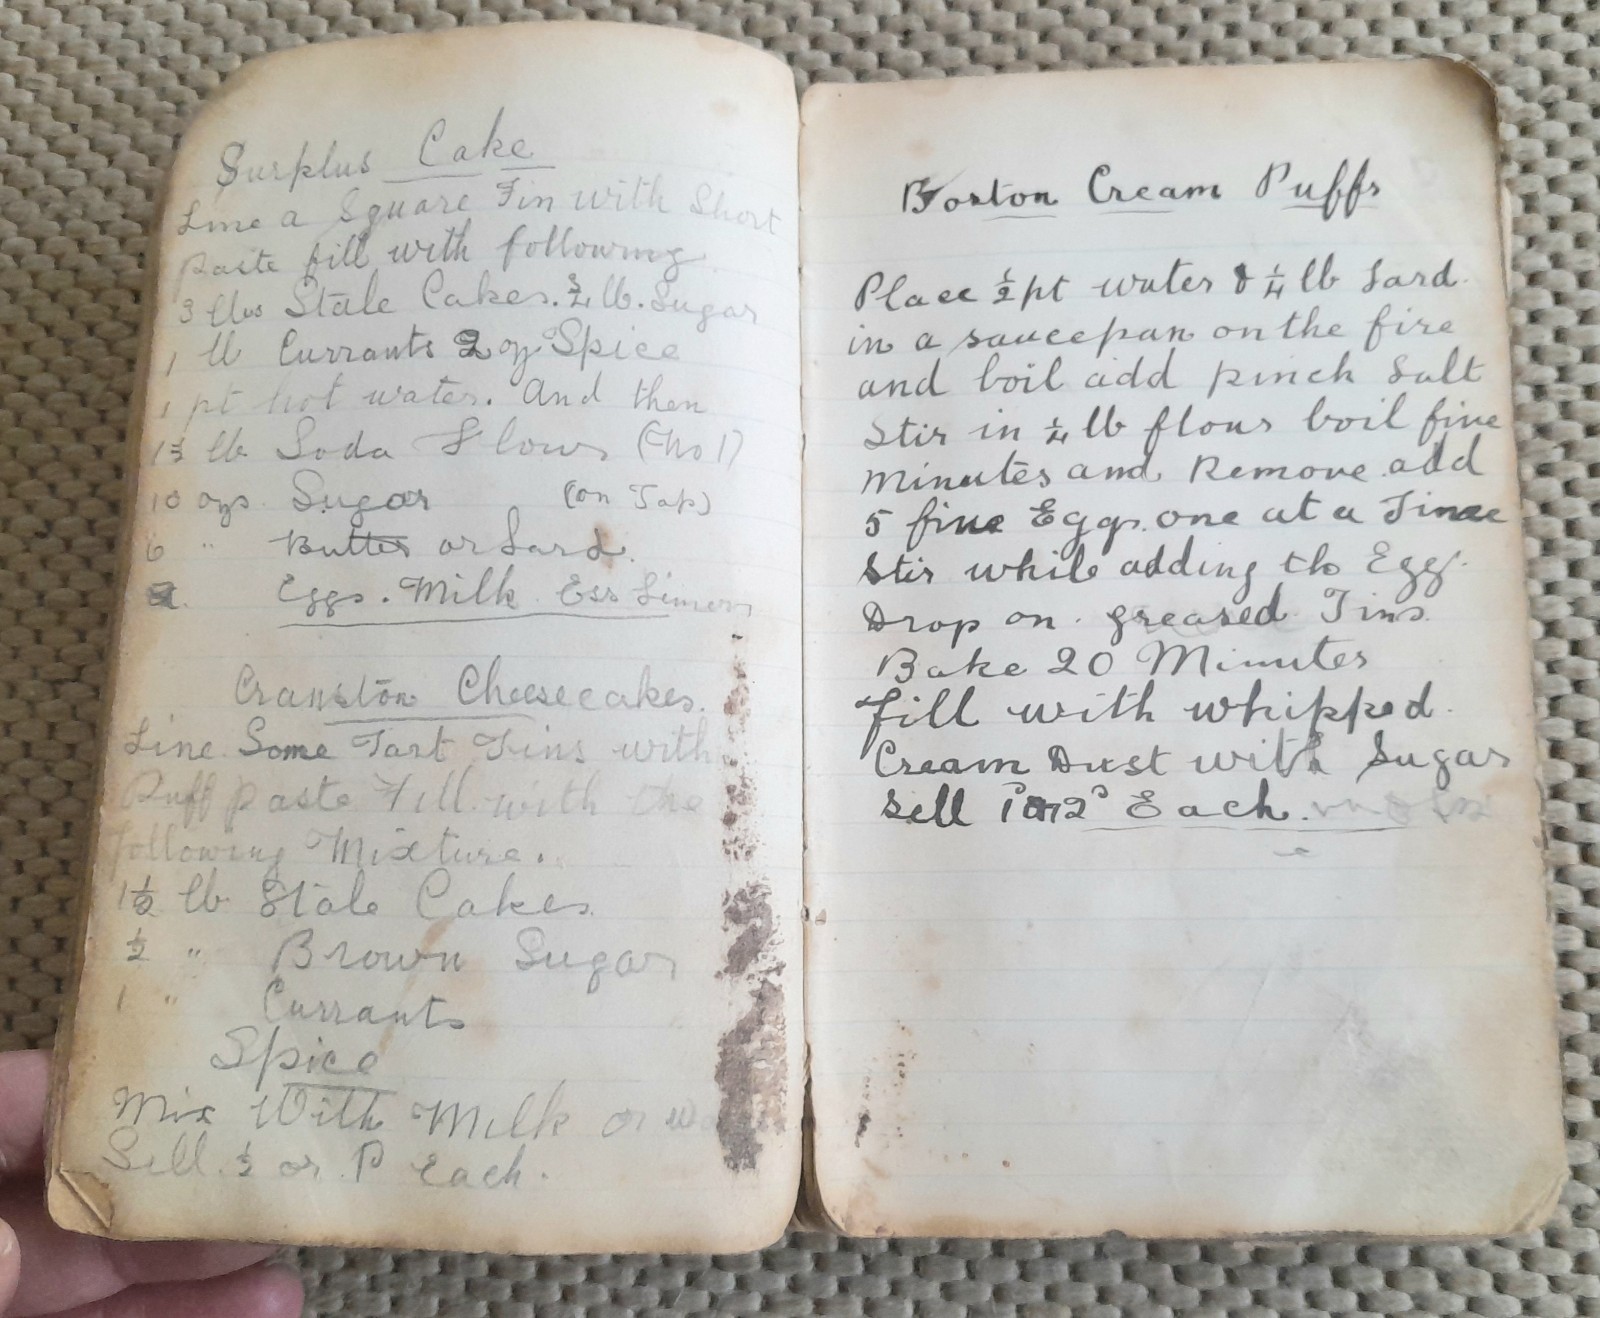 Surplus Cake
Line a Square Tin with Short
paste fill with following
3 lbs Stale Cakes. ¾ lb. Sugar
1 lb Currants 2 oz Spice
1 pt hot water. And then
lb Soda Flour (No 1)
10 ozs Sugar (on Top)
6 " Butter or Lard.
Eggs. Milk Ess Limon
Cranston Cheesecakes.
Line Some Tart Tins with
Puff paste Fill with the
following Mixture.
1½ lb Stale Cakes
½ " Brown Sugar
1 " Currants
Spice
Mix With Milk or
Sell ½ or P Each.
Boston Cream Puffs
Place ½ pt water & ¼ lb Lard
in a saucepan on the fire
and boil add pinch Salt
Stir in ¼ lb flour boil five
Minutes and Remove add
5 five Eggs one at a Time
Stir while adding the Egg.
Drop on greased Tins
Bake 20 Minutes
fill with whipped
Cream Dust with Sugar
Sell 1D or 2D Each.